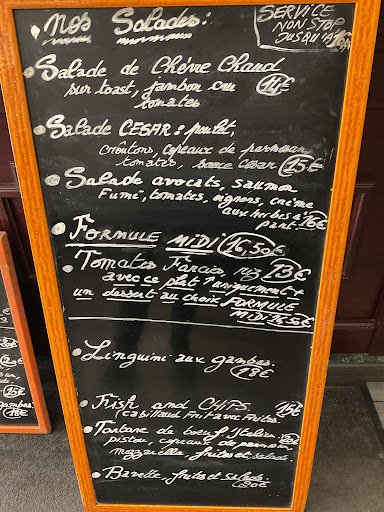 Nos Salades:
SERVICE
NON STOP
JUSQU'A
Salade de Chèvre Chaud
sur toast, jambon cru 14€
tomates
Salade CESAR: poulet,
croûtons, copeaux de parmesan
tomates, sauce César 15€
Salade avocats, saumon
Fumé, tomates, oignons, crème
aux herbes à
part. 16€
FORMULE MIDI 16,50€
Tomates Farcies, riz 13€
avec ce plat uniquement +
un dessert au choix FORMULE
MIDI 16.50€
Linguini aux gambas.
18€
Fish and CHIPS. 15€
cabillaud Frit avec Frites.
Tartare de bœuf l'Italien
pistou, copeaux de parmesan
mozzarella, frites et salade.
Bavette, frites et salade.
20€